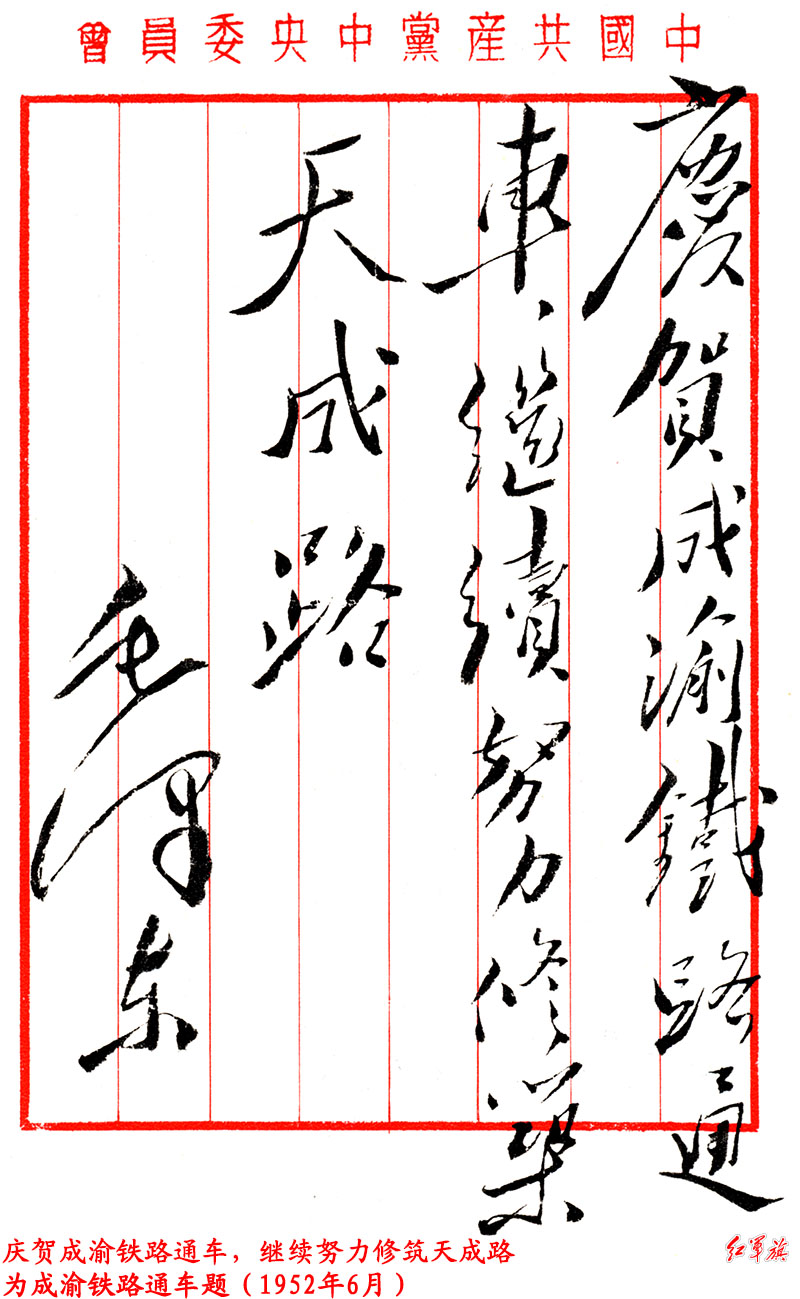 會員委央中黨産共國中
慶賀成渝鐵路通
車、繼續努力修築
天成路
毛澤东
庆贺成渝铁路通车，继续努力修筑天成路
为成渝铁路通车题（1952年6月）
红军旗